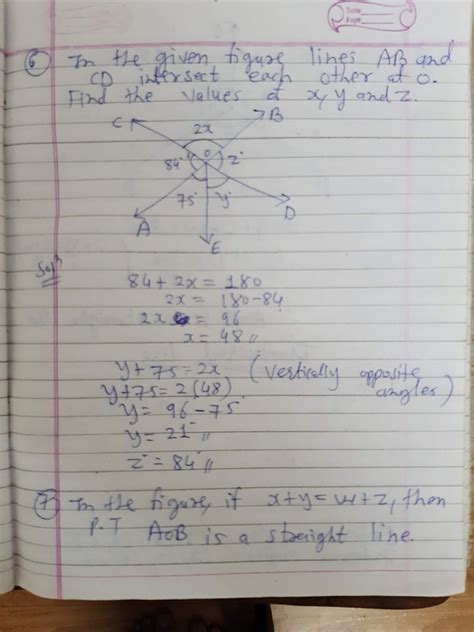 Date
Page
6 In the given figure lines AB and
CD intersect each other at O.
Find the values of x, y and z.
C B
2x
84° O z°
75° y°
A D
E
Sol^n
84 + 2x = 180
2x = 180 - 84
2x = 96
x = 48 //
y + 75 = 2x (vertically opposite
y + 75 = 2(48) angles)
y = 96 - 75
y = 21° //
z° = 84° //
7 In the figure, if x + y = w + z, then
P.T AOB is a straight line.